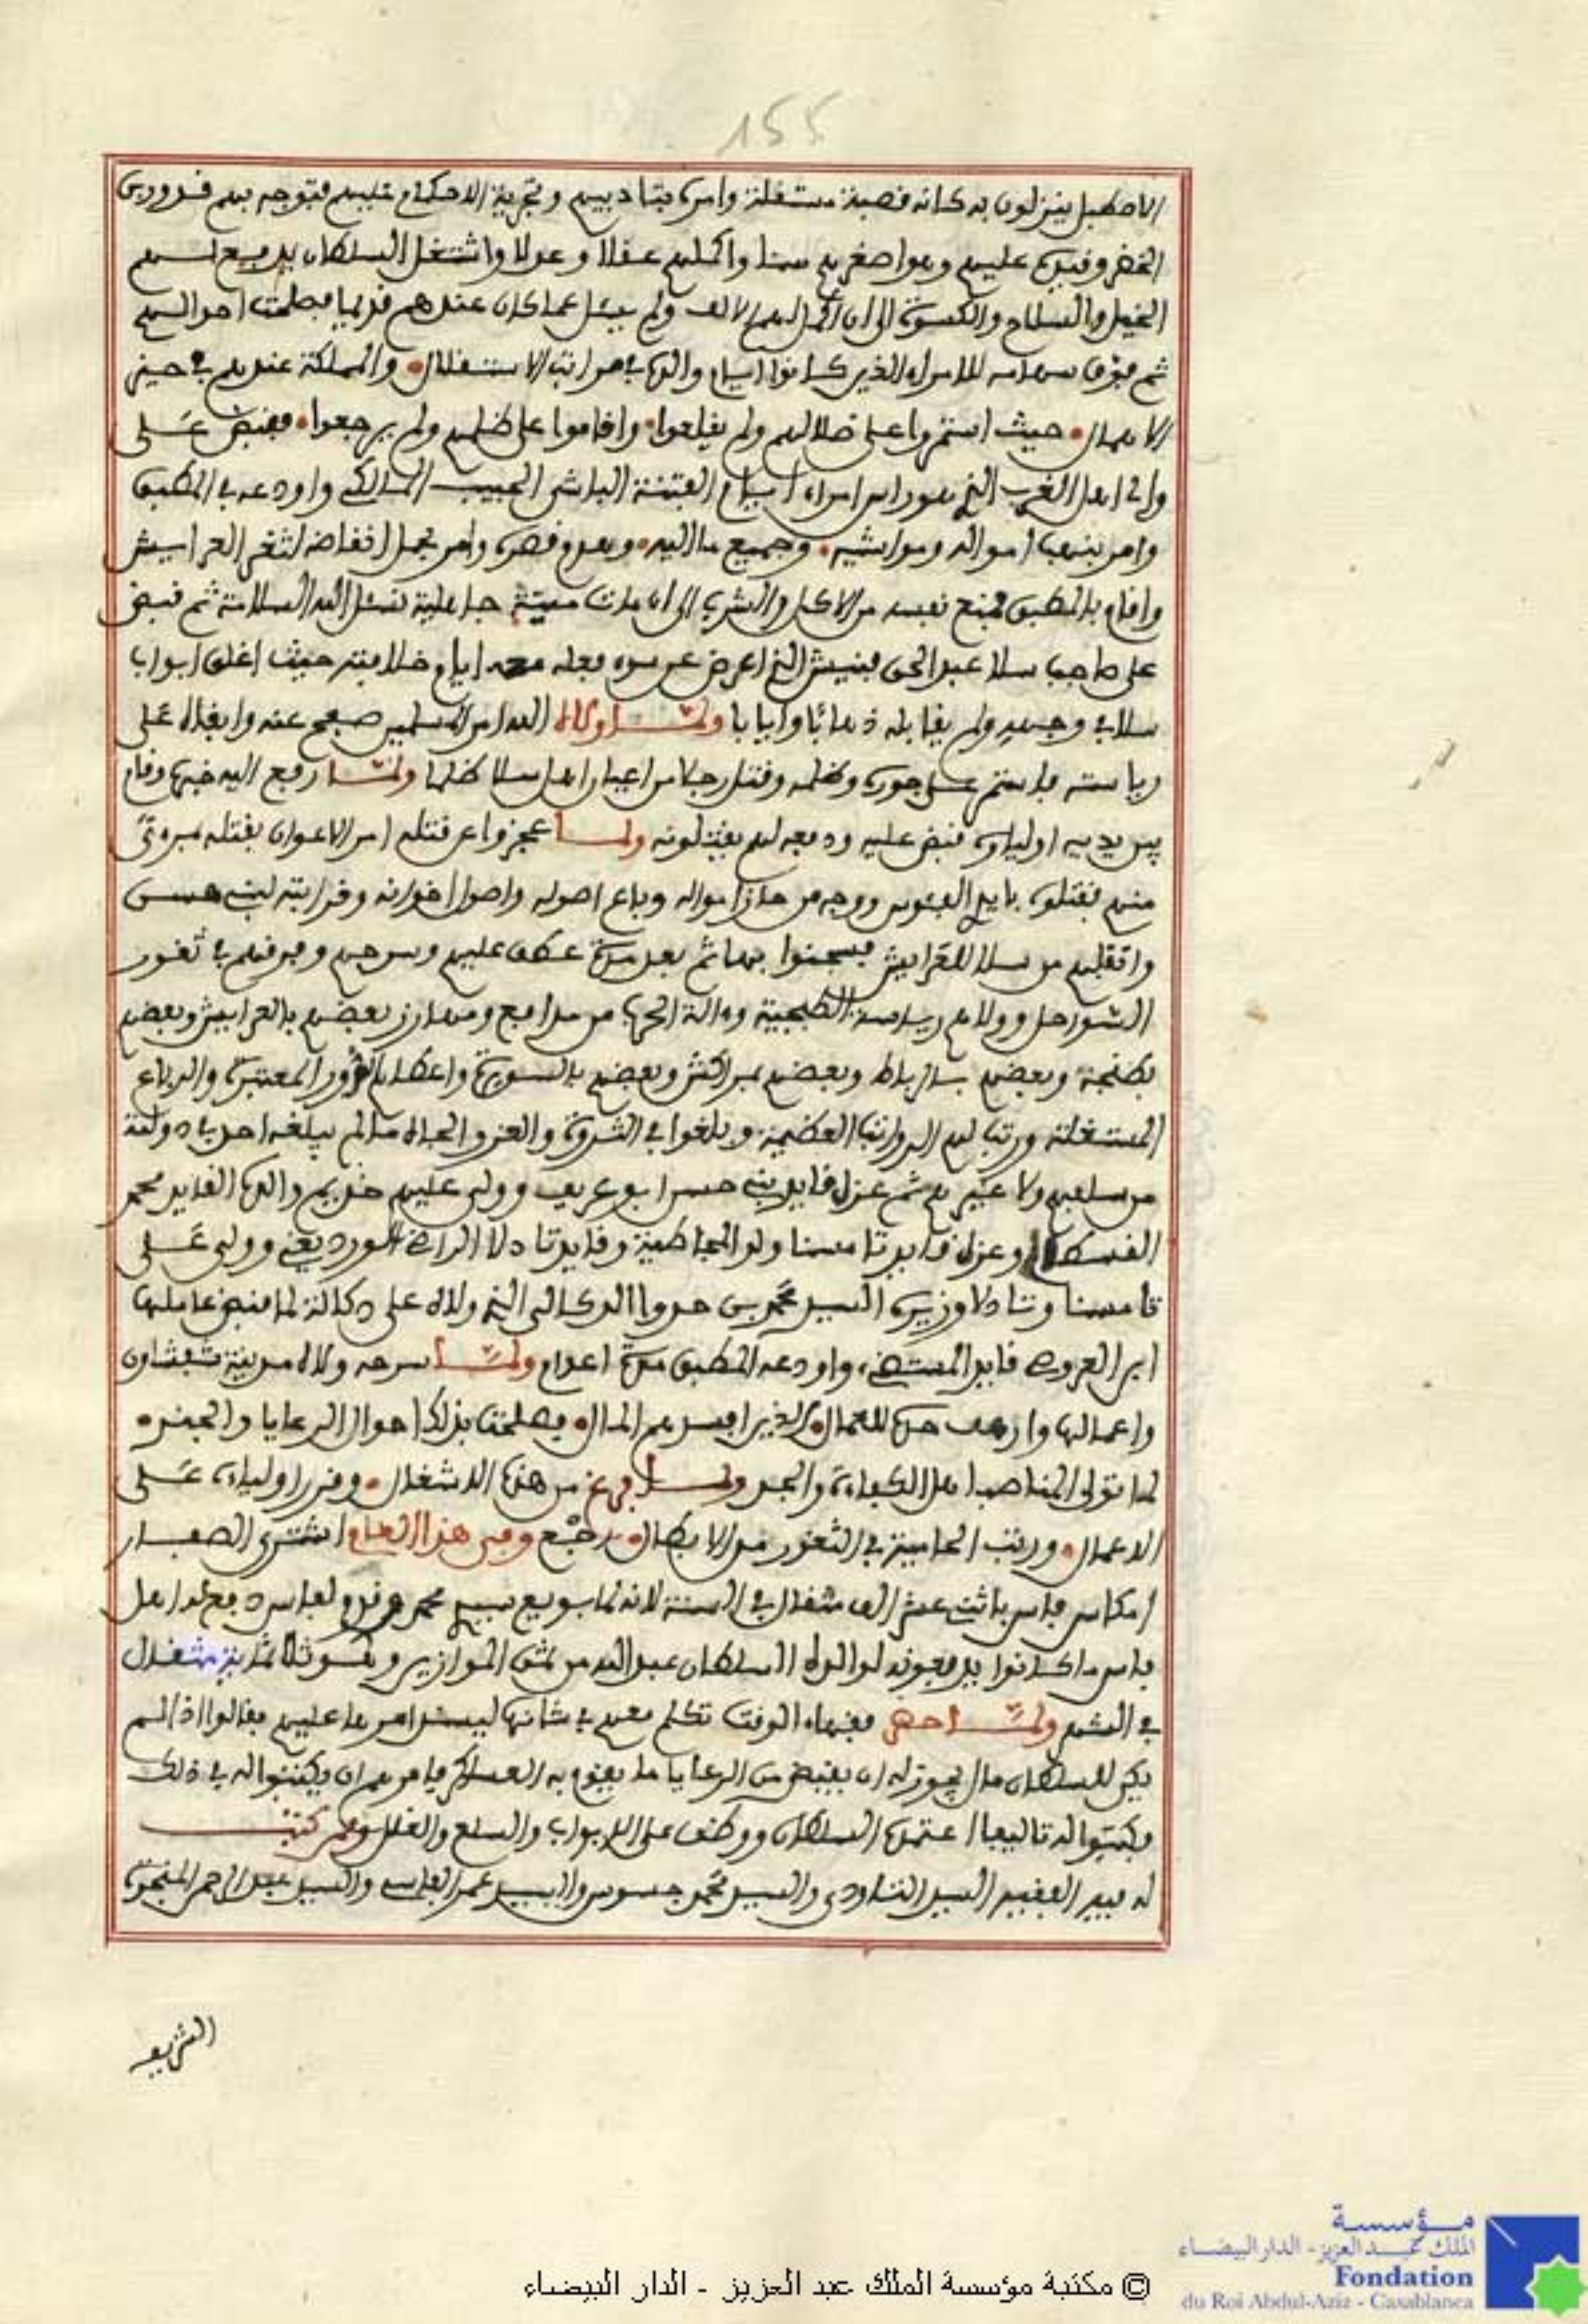 155
الاصطبل ينزلون به كانه قصبة مستقلة وامره بتاديبهم وتجرية الاحكام عليهم فتوجه بهم قدور بن
الخضر وقيده عليهم وهو اصغرهم سنا واكملهم عقلا وعدلا واشتغل السلطان يدفع لهم
الخيل والسلاح والكسوة الى ان اكمل لهم الالف ولم يسئل عما كان عندهم قديما فصلحت احوالهم
ثم فوق سهامه للامراء الذين كانوا ايام والده في مراتب الاستقلال والمملكة عندهم في حيز
الاهمال حيث استمروا على ضلالهم ولم يقلعوا واقاموا على ظلمهم ولم يرجعوا فقبض على
والى اهل الغرب الذي هو راس امراء ايام الفتنة الباشا الحبيب المالكي واودعه في المطبق
وامر بنهب امواله ومواشيه وجميع ما اليه وهدم قصره وامر بحمل انقاضه لثغر العرايش
واقام بالمطبق فمنع نفسه من الاكل والشرب الى ان مات ميتة جاهلية نسئل الله السلامة ثم قبض
على صاحب سلا عبد الحق فنيش الذي اعرض عن سوء فعله معه ايام خلافته حيث اغلق ابواب
سلا في وجهه ولم يقابله ذهابا وايابا ولما ولاه الله امر المسلمين صفح عنه وابقاه على
رياسته فاستمر على جوره وظلمه وقتل رجلا من اعيان اهل سلا ظلما ولما رفع اليه خبره وقام
بين يديه اولياؤه قبض عليه ودفعه لهم يقتلونه ولما عجزوا عن قتله امر الاعوان بقتله مبرءة
منهم فقتلوه بايد الفئوس ووجه من حاز امواله وباع اصوله واصول اخوانه وقرابته لبني حسن
وانتقلهم من سلا للعرايش فسجنوا بها ثم بعد مدة عطف عليهم وسرحهم وفرقهم في ثغور
السواحل وولاهم رياسة الطبجية وءالة الحرب من مدافع ومهارز بعضهم بالعرايش وبعضهم
بطنجة وبعضهم بالرباط وبعضهم بمراكش وبعضهم بالسويرة واعطاهم الدور المعتبرة والرباع
المستغلة ورتب لهم الرواتب العظيمة وبلغوا في الثروة والعز والجاه ما لم يبلغه احد في دولته
من سلفهم ولا غيرهم ثم عزل قايد بني حسن ابو عريف وولى عليهم خديم والده القايد محمد
القسطالي وعزل قايد تامسنا ولد المجاطية وقايد تادلا الراضي الورديغي وولى على
تامسنا وتادلا وزيره السيد محمد بن حدوا الدكالي الذي ولاه على دكالة لما قبض عاملها
ابن العروصي قايد المستضيء واودعه المطبق مدة اعوام ولما سرحه ولاه مدينة شفشاون
واعمالها وارهف حده للعمال الذين افسدهم المال فصلحت بذلك احوال الرعايا والجند
لما تولى المناصب اهل الكفاءة والجد ولما فرغ من هذه الاشغال وقرر اولياءه على
الاعمال ورتب الحامية في الثغور من الابطال رجع وفي هذا العام اشترى الصفار
امكاس فاس باثني عشر الف مثقال في السنة لانه لما بويع سيدي محمد وفد ولفاس دفع له اهل
فاس ما كانوا يدفعونه لوالده السلطان عبد الله من ثمن الموازين وهو ثلاثماية مثقال
في الشهر ولما حضر فقهاء الوقت تكلم معهم في شانها ليستمر امرها عليهم فقالوا اذا لم
يكن للسلطان مال يجوز له ان يقبض من الرعايا ما يقوم به العسكر فامرهم ان يكتبوا له في ذلك
فكتبوا له تاليفا اعتمده السلطان ووظف على الابواب والسلع والغلل وممن كتب
له فيه الفقيه السيد التاودي والسيد محمد جسوس والسيد عمر الفاسي والسيد عبد الرحمن المنجرة
الشريف
© مكتبة مؤسسة الملك عبد العزيز - الدار البيضاء
مؤسسة
الملك عبد العزيز - الدار البيضاء
Fondation
du Roi Abdul-Aziz - Casablanca